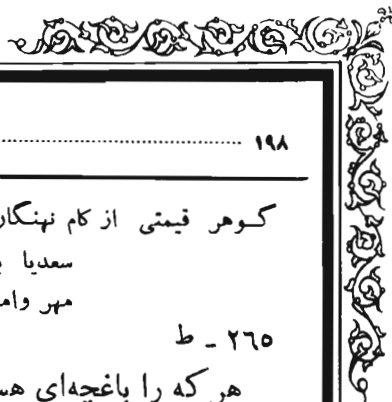 ۱۹۸
گوهر قیمتی از کام نهنگا
سعدیا
مهر وام
۲٦٥ ـ ط
هر که را باغچه‌ای هس